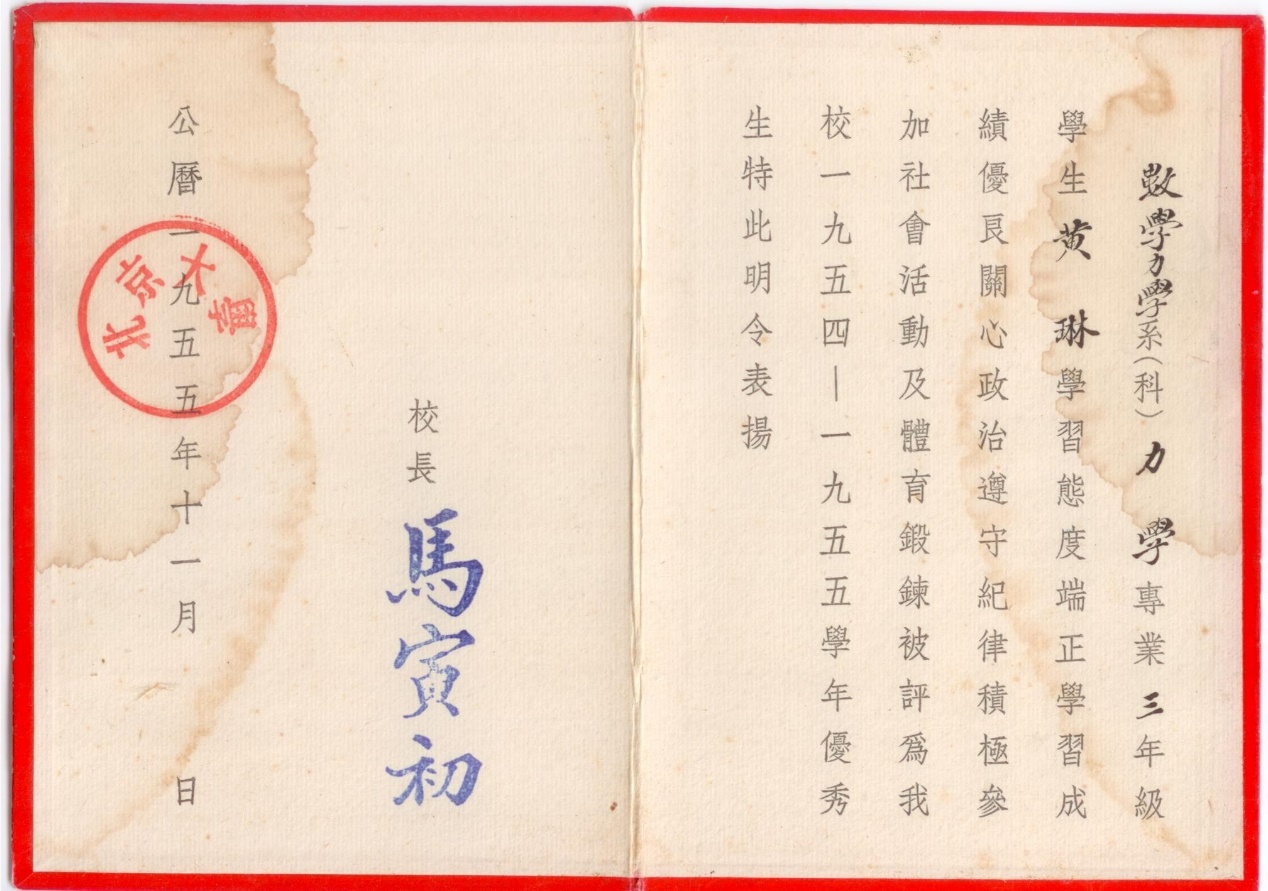 數學力學系（科）力學專業三年級
學生黄琳學習態度端正學習成
績優良關心政治遵守紀律積極參
加社會活動及體育鍛鍊被評爲我
校一九五四—一九五五學年優秀
生特此明令表揚
校長 馬寅初
公曆一九五五年十一月 日
北京大學